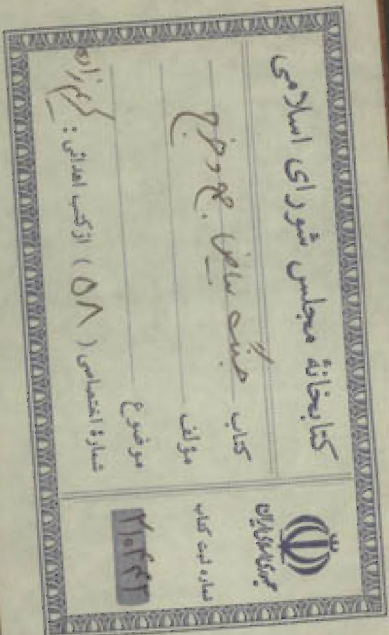 کتابخانهٔ مجلس شورای اسلامی
کتاب جنگ بیاض جمع و خرج
مؤلف
موضوع
شمارهٔ اختصاصی ( ۵۸ ) از کتب اهدائی :
جمهوری اسلامی ایران
شماره ثبت کتاب